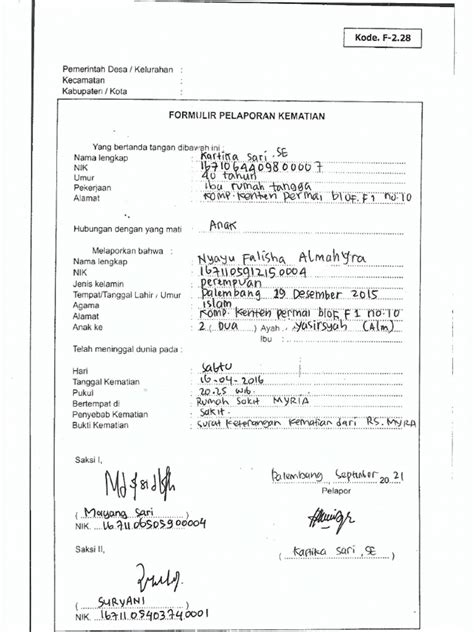 Kode. F-2.28
Pemerintah Desa / Kelurahan :
Kecamatan :
Kabupaten / Kota :
FORMULIR PELAPORAN KEMATIAN
Yang bertanda tangan dibawah ini :
Nama lengkap : Kartika Sari, SE
NIK : 1671064409800007
Umur : 40 tahun
Pekerjaan : ibu rumah tangga
Alamat : Komp. Kenten permai blok. F1 no.10
Hubungan dengan yang mati : Anak
Melaporkan bahwa :
Nama lengkap : Nyayu Falisha Almahyra
NIK : 1671105912150004
Jenis kelamin : perempuan
Tempat/Tanggal Lahir / Umur : Palembang 19 Desember 2015
Agama : islam
Alamat : Komp. Kenten permai blok F1 no.10
Anak ke : 2 (DUA) Ayah : Yasirsyah (Alm)
Ibu :
Telah meninggal dunia pada :
Hari : Sabtu
Tanggal Kematian : 16-04-2016
Pukul : 20.25 wib.
Bertempat di : Rumah Sakit MYRIA
Penyebab Kematian : Sakit.
Bukti Kematian : Surat Keterangan Kematian dari RS. MYRA
Saksi I,
Palembang September 2021
Pelapor
( Mayang Sari )
NIK. 1671106505900004
Saksi II,
( Kartika Sari, SE )
( SURYANI )
NIK. 1671107403740001